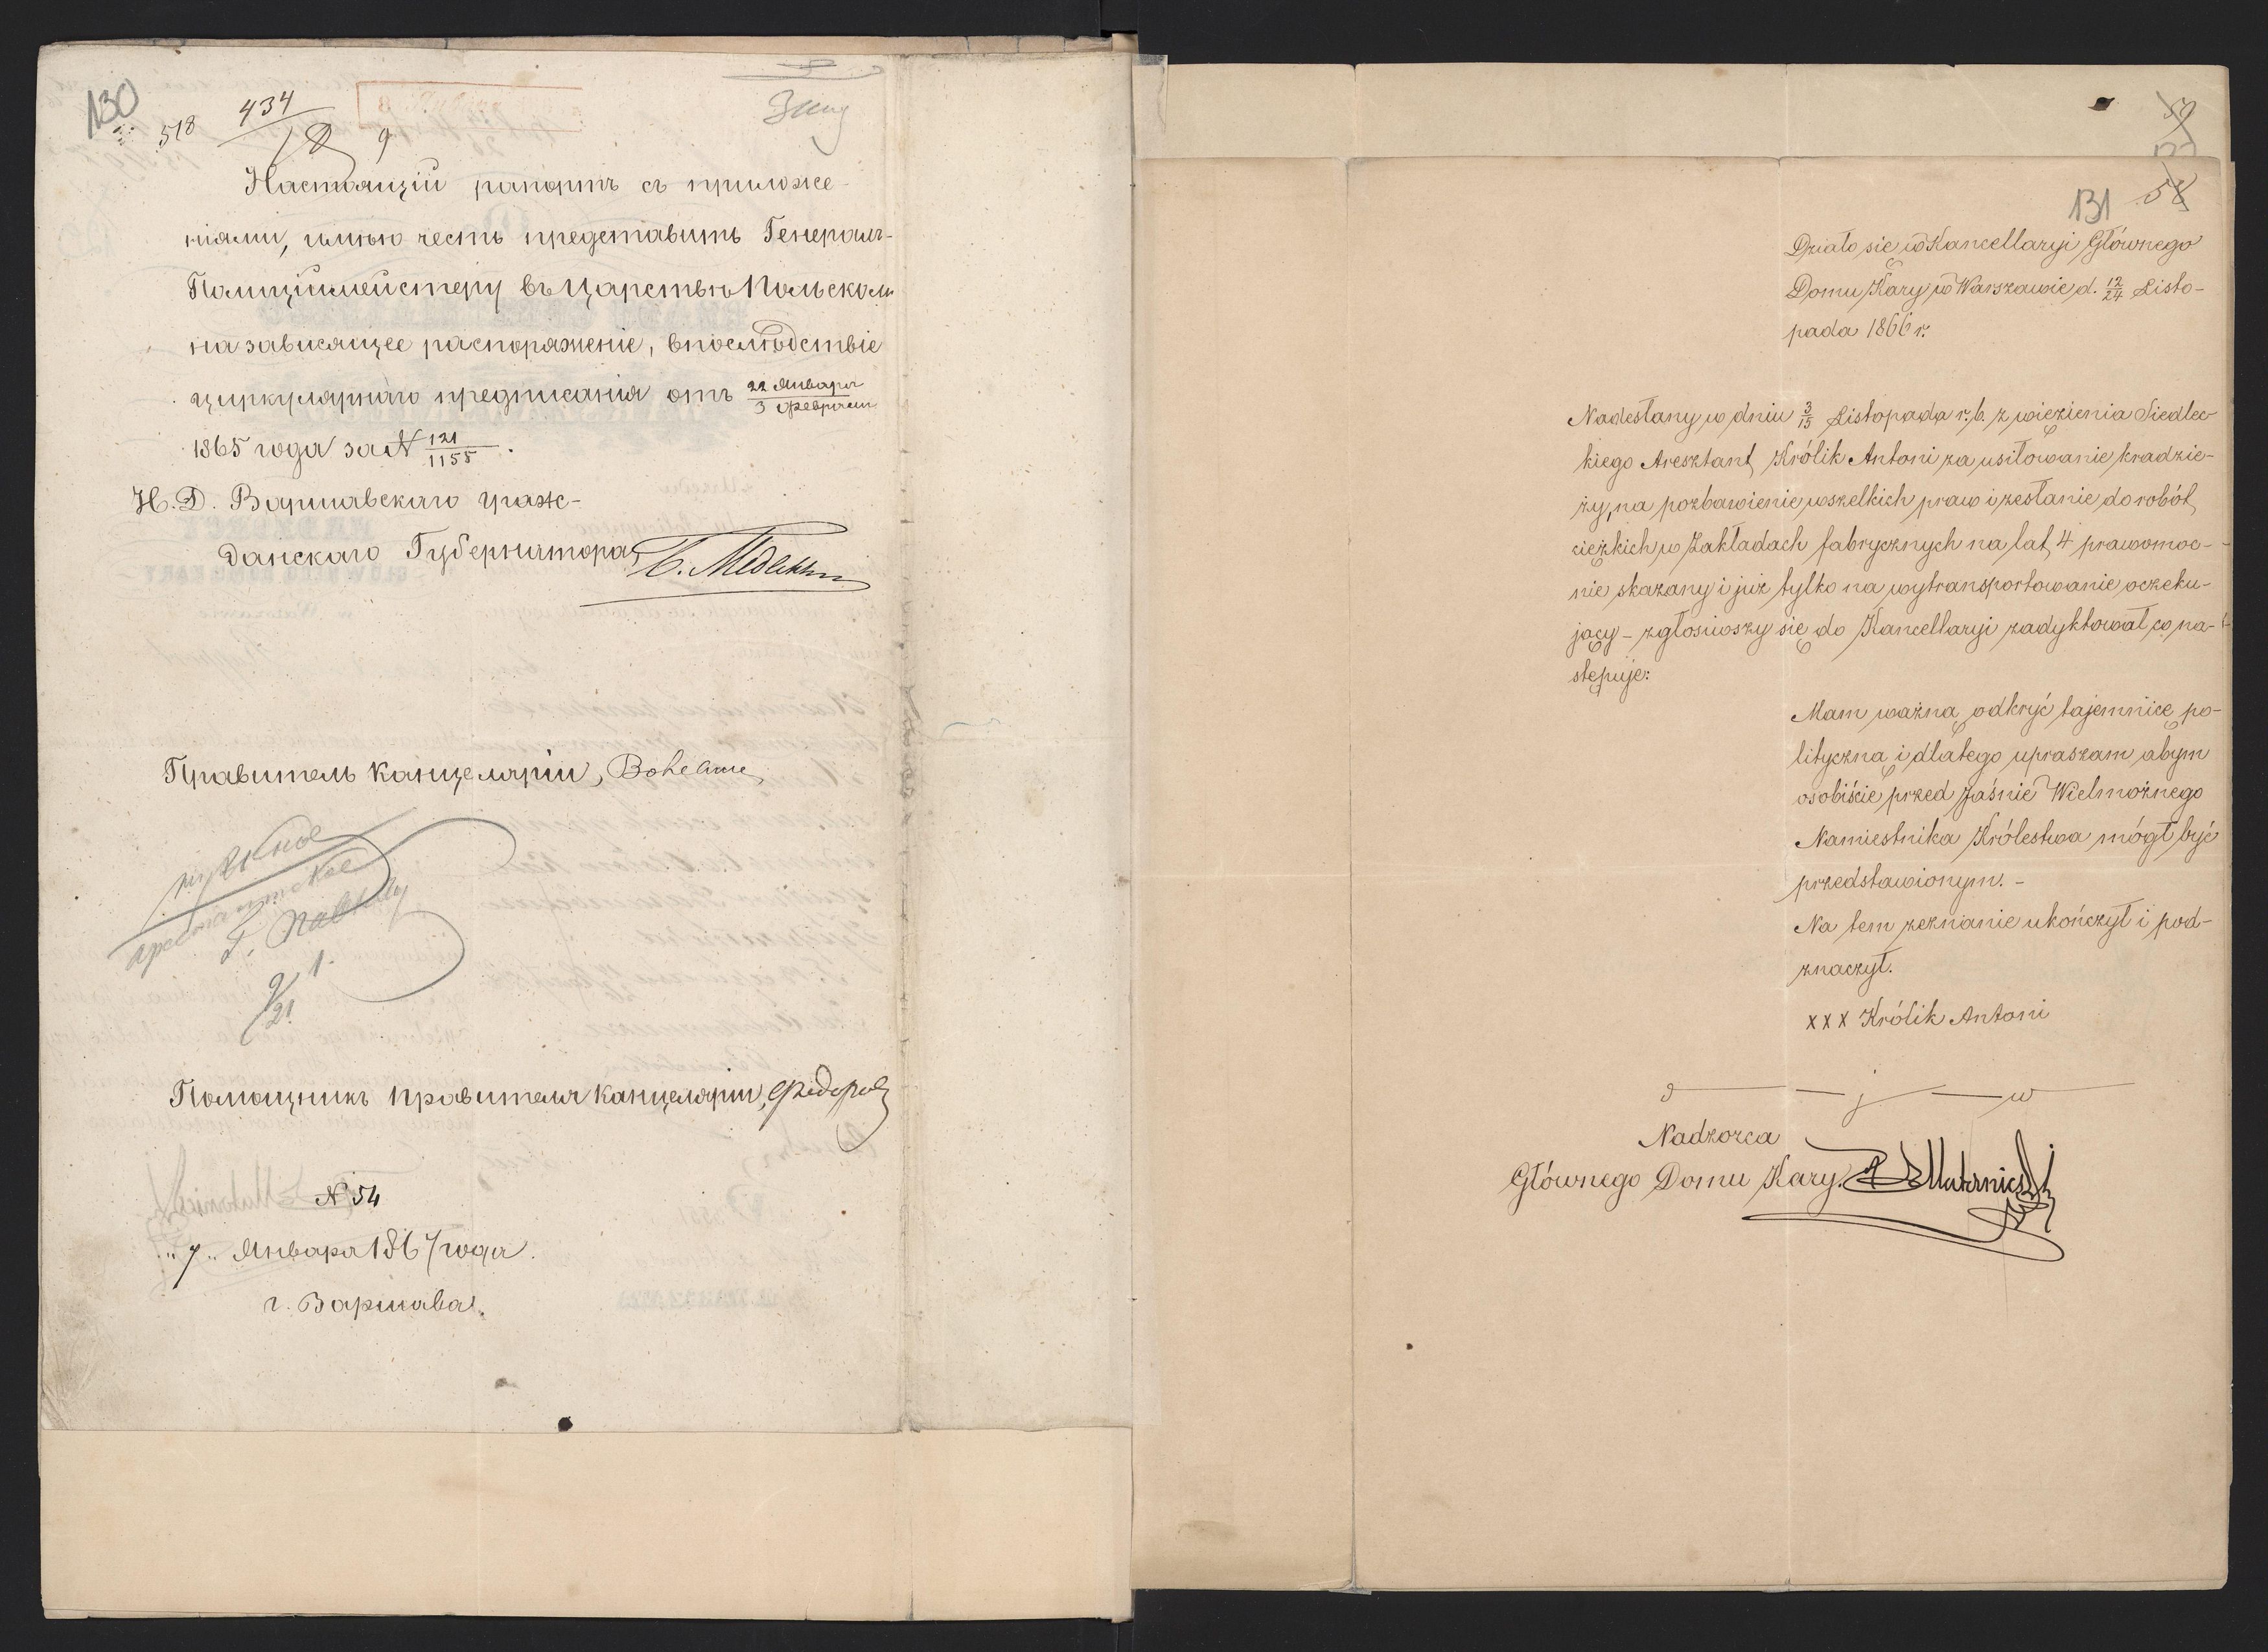 130
518 434
9
Настоящій рапортъ съ приложе-
ніями, имѣю честь представить Генералъ-
Полицiймейстеру въ Царствѣ Польскомъ
на зависящее распоряженіе, впослѣдствіе
циркулярнаго предписанія отъ 22 Января / 3 Февраля
1865 года за N 121/1155.
Н. Д. Варшавскаго граж-
данскаго Губернатора,
Правитель Канцеляріи,
нужное
арестантское
1.
9/21
Помощникъ Правителя Канцеляріи, Федоровъ
N 54
"7" Января 1867 года.
г. Варшава.
131 58
Działo się w Kancellaryi Głównego
Domu Kary w Warszawie d. 12/24 Listo-
pada 1866 r.
Nadesłany w dniu 3/15 Listopada r. b. z więzienia Siedlec-
kiego Aresztant Królik Antoni za usiłowanie kradzie-
ży, na pozbawienie wszelkich praw i zesłanie do robót
ciężkich w Zakładach fabrycznych na lat 4 prawomoc-
nie skazany i już tylko na wytransportowanie oczeku-
jący – zgłosiwszy się do Kancellaryi zadyktował co na-
stępuje:
Mam ważną odkryć tajemnicę po-
lityczną i dlatego upraszam abym
osobiście przed Jaśnie Wielmożnego
Namiestnika Królestwa mógł być
przedstawionym. –
Na tem zeznanie ukończył i pod-
znaczył.
x x x Królik Antoni
d j w
Nadzorca
Głównego Domu Kary.